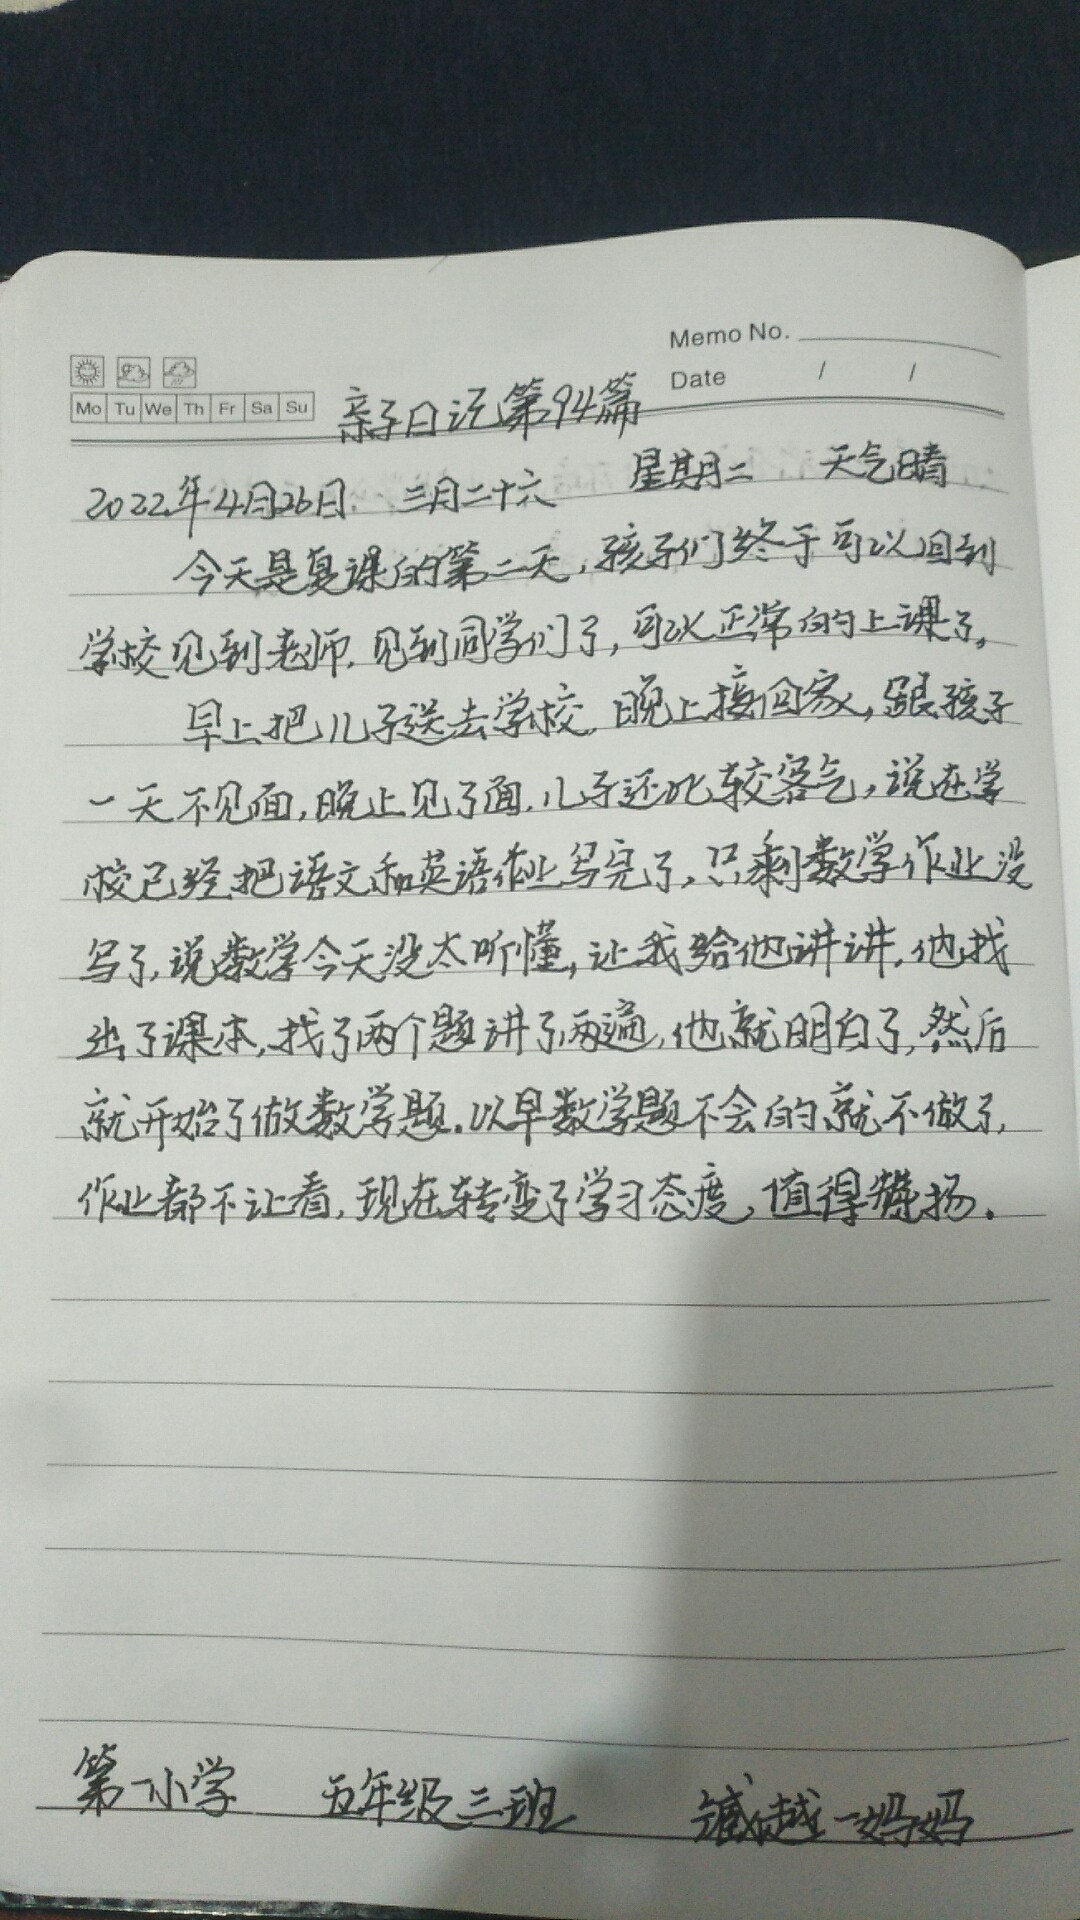 Memo No.
Date / /
Mo Tu We Th Fr Sa Su
亲子日记第94篇
2022年4月26日. 三月二十六 星期二 天气晴
今天是复课的第二天,孩子们终于可以回到
学校见到老师.见到同学们了,可以正常的上课了。
早上把儿子送去学校.晚上接回家,跟孩子
一天不见面,晚上见了面.儿子还比较客气,说在学
校已经把语文和英语作业写完了,只剩数学作业没
写了,说数学今天没太听懂,让我给他讲讲.他找
出了课本,找了两个题讲了两遍,他就明白了,然后
就开始了做数学题.以早数学题不会的就不做了,
作业都不让看,现在转变了学习态度,值得赞扬.
第一小学 五年级三班 越一妈妈